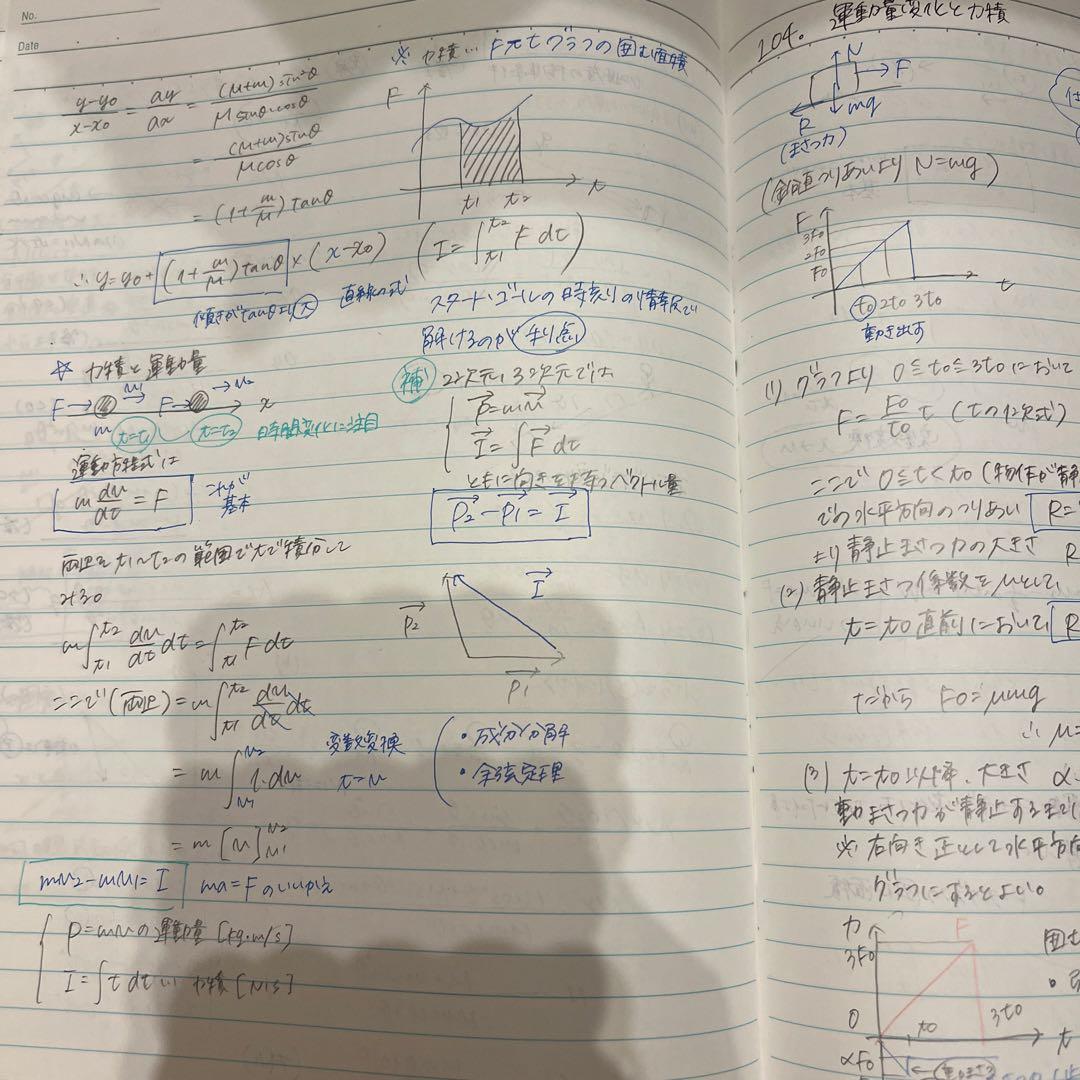 No.
Date
y-y0/x-x0 = ay/ax = (M+m)sin²θ/M sinθ・cosθ
= (M+m)sinθ/Mcosθ
= (1+m/M)tanθ
∴ y=y0+(1+m/M)tanθ×(x-x0)
傾きがtanθより大 直線の式
☆ 力積と運動量
F→ v1 F→ →v2 x
m t=t1 t=t2 時間変化に注目
運動方程式は
m dv/dt = F これが基本
両辺を t1~t2の範囲でtで積分して
みる
m∫t1 t2 dv/dt dt = ∫t1 t2 F dt
ここで(両辺) = m∫t1 t2 dv/dt dt
= m∫v1 v2 1・dv 変数変換 t→v
= m[v]v1 v2
mv2-mv1=I ma=Fのいいかえ
P=mv の運動量[kg・m/s]
I=∫t dt … 力積[N・s]
※ 力積… F-tグラフの囲む面積
F
t1 t2 t
(I=∫t1 t2 F dt)
スタート・ゴールの時刻の情報で
解けるのが利点
補 2次元,3次元では
P=mv
I=∫F dt
ともに向きを持つベクトル量
P2-P1=I
P2 I
P1
・成分分解
・余弦定理
104. 運動量変化と力積
N F
R mg
(まさつ力)
(鉛直つりあいより N=mg)
F
3F0
2F0
F0
t0 2t0 3t0 t
動き出す
(1) グラフより 0≦t0≦3t0 において
F=F0/t0 t (tの1次式)
ここで 0≦t<t0 (物体が静
での水平方向のつりあい R=
より静止まさつ力の大きさ R
(2) 静止まさつ係数をμとして、
t=t0 直前において、R
だから F0=μmg
∴ μ=
(3) t=t0以降、大きさ α
動まさつ力が静止するまで
※ 右向き正として水平方向
グラフにするとよい。
力 F 囲む
3F0
0 t0 3t0 t
αF0